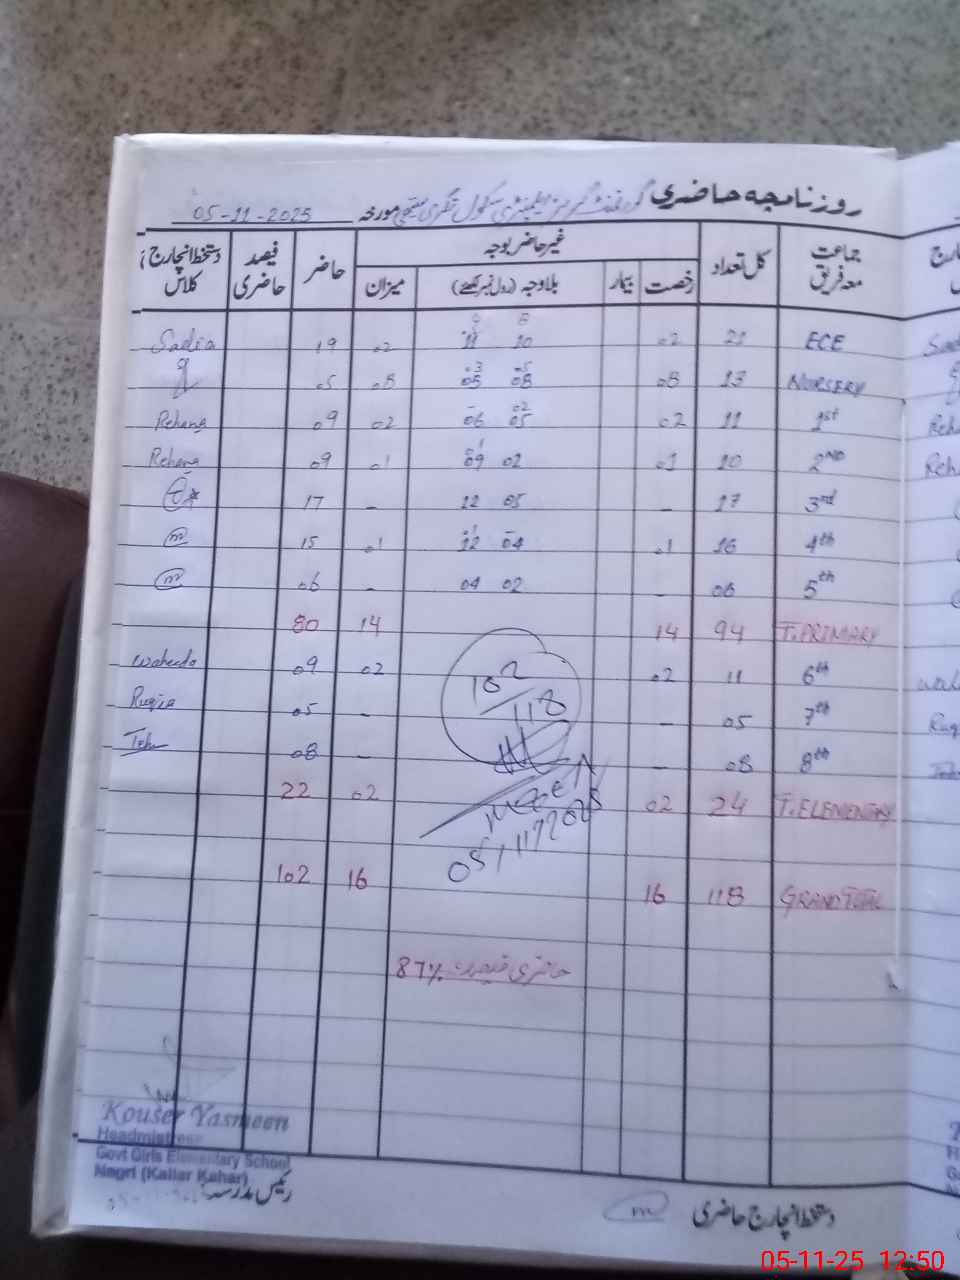 روزنامچہ حاضری گورنمنٹ گرلز ایلیمنٹری سکول مورخہ 05-11-2025
جماعت معہ فریق کل تعداد غیر حاضر بوجہ حاضر فیصد حاضری دستخط انچارج کلاس
رخصت بیمار بلاوجہ (رول نمبر لکھئے) میزان
ECE 21 02 02 19 Sadia
11 10
NURSERY 13 08 08 05
03 05
05 08
1st 11 02 02 09 Rehana
02
06 05
2ND 10 01 09 02 01 09 Rehana
3rd 17 - 12 05 - 17
4th 16 01 12 04 01 15 m
5th 06 - 04 02 - 06 m
T.PRIMARY 94 14 14 80
6th 11 02 02 09 Waheeda
7th 05 - - 05 Ruqia
8th 08 - - 08
102
118
T.ELEMENTRY 24 02 02 22
05/11/2025
GRAND TOTAL 118 16 16 102
حاضری فیصد 87%
Kouser Yasmeen
Headmistress
Govt Girls Elementary School
Nagri (Kallar Kahar)
رئیس مدرسہ
دستخط انچارج حاضری m
05-11-25 12:50